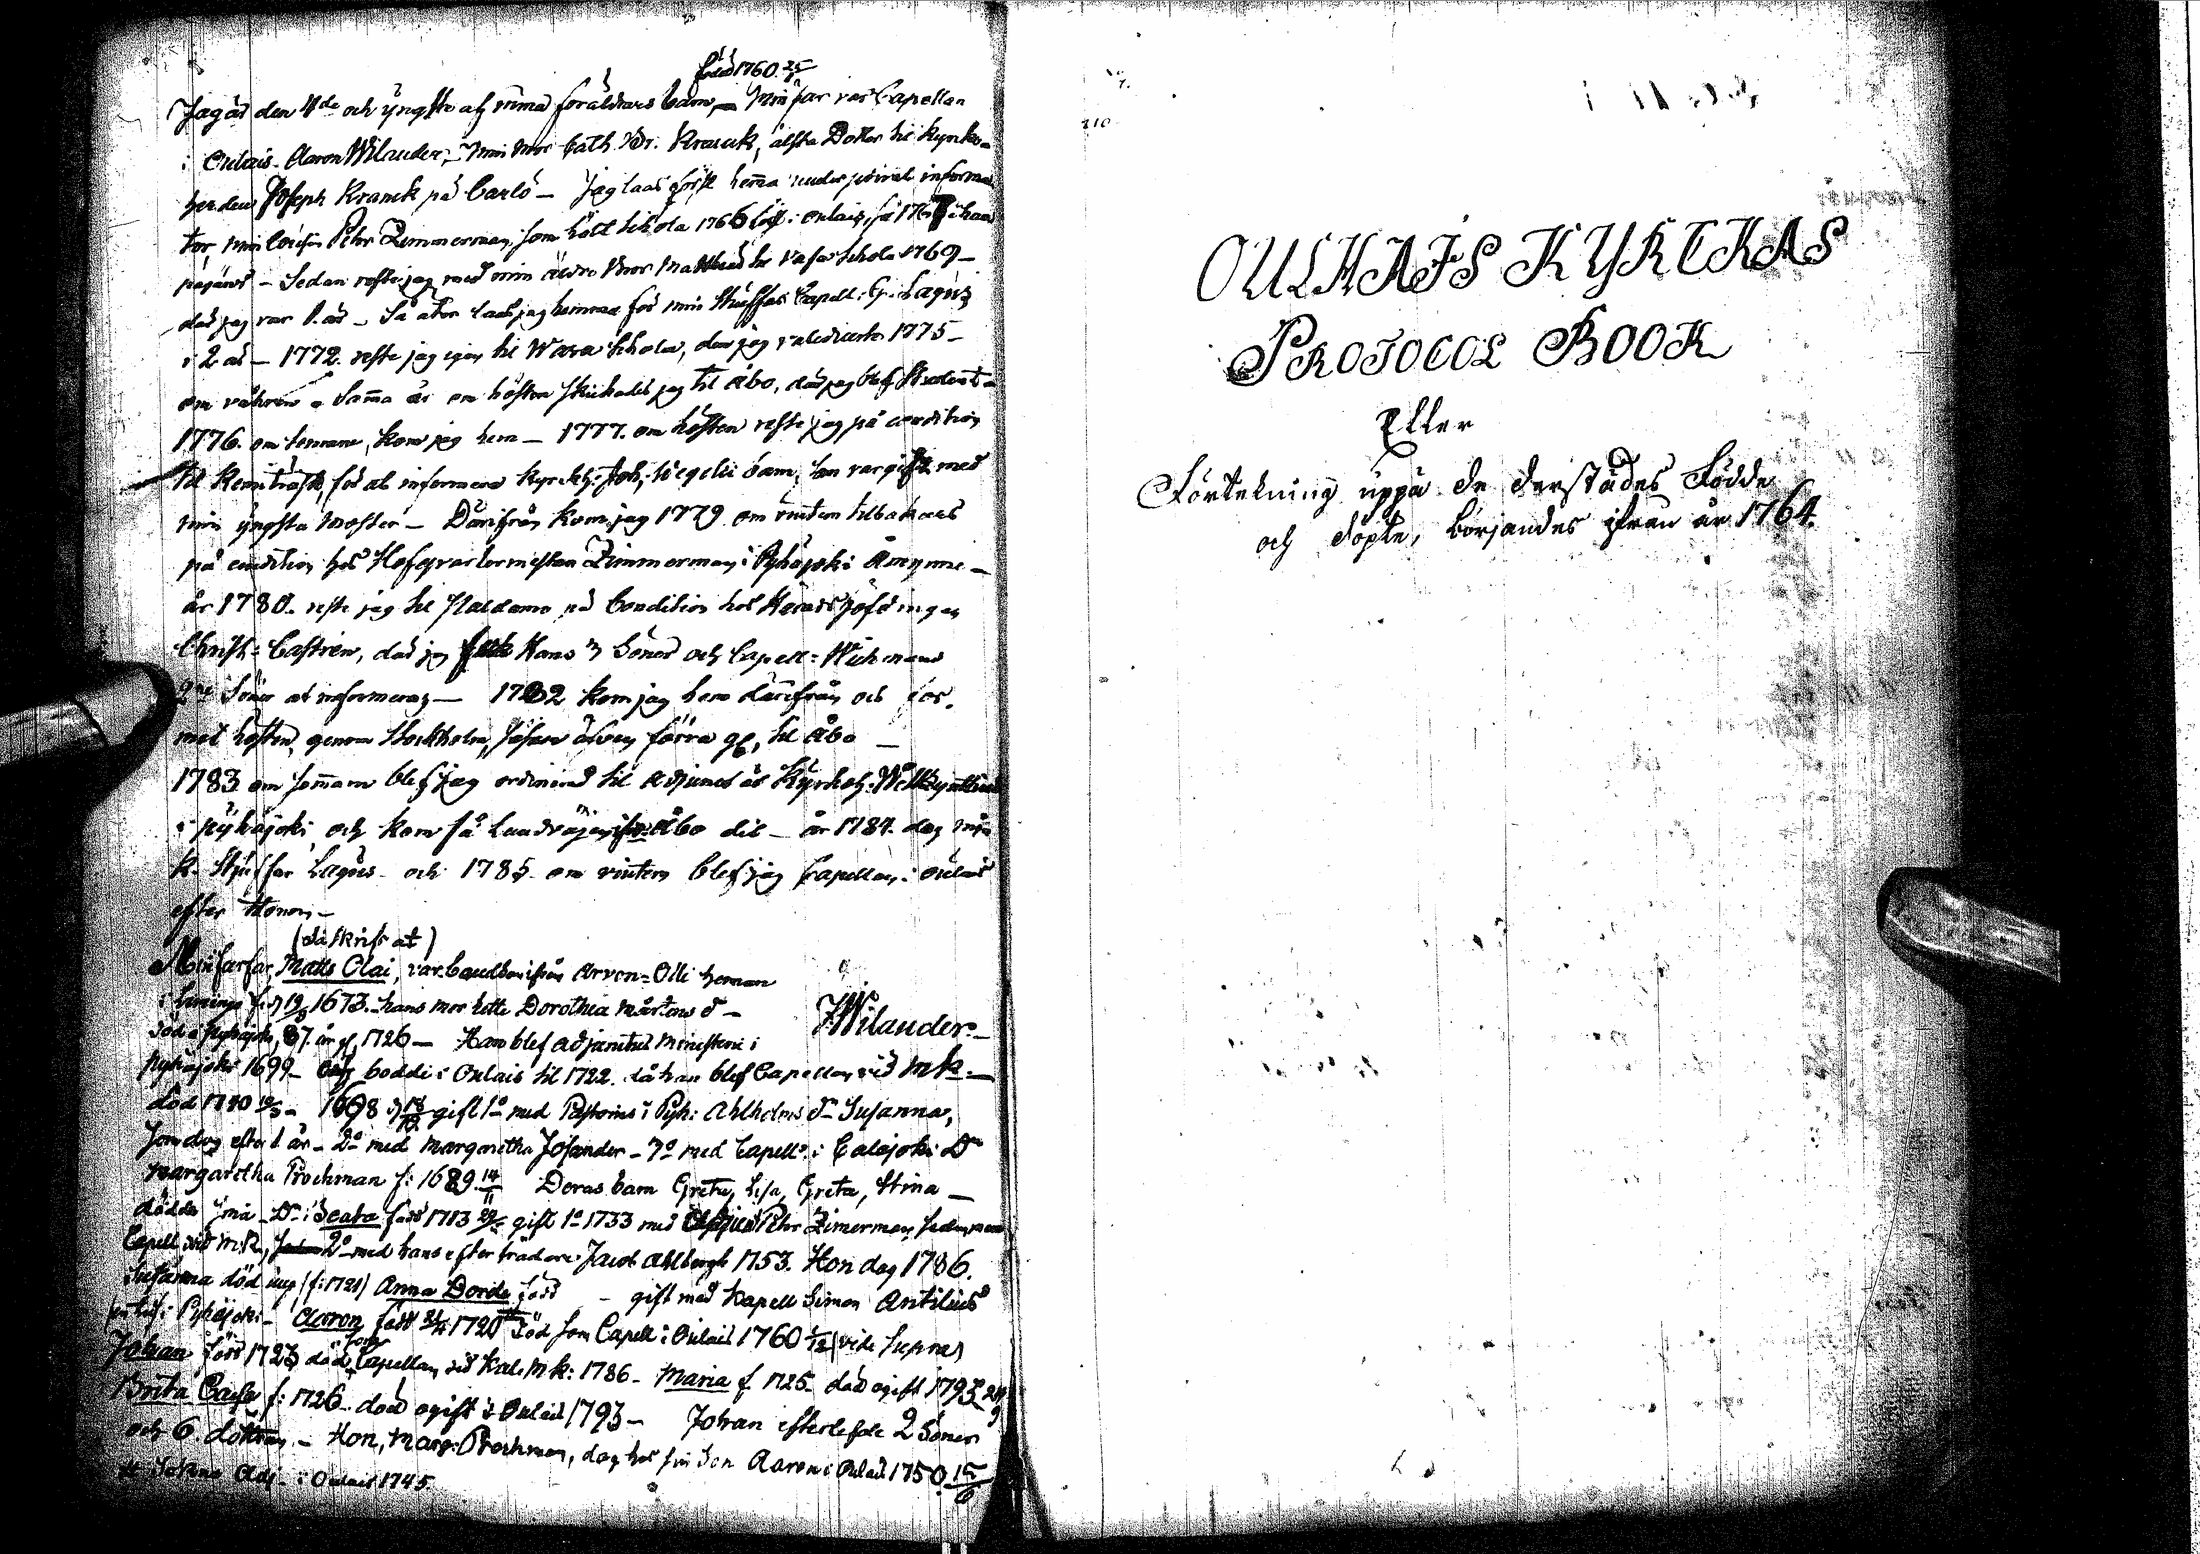 född 1760. 25/8
Jag är den 4de och yngste af mina föräldrars barn, Min far var Capellan
i Oulais Aaron Wilander, min Mor Cath. Kranck, älsta Dotter til kyrko-
herden Joseph Kranck på Carlö – Jag laas först hema under privat informa
tor, min Cousin Petr Zimmerman, som hölt Schola 1766 i Oulais,
– Sedan reste jag med min äldre bror til Vasa Schola 1769 –
då jag var 9. år – Så åter laas jag hemma för min Stüffar Capell: G. Lagus
i 2 år – 1772. reste jag igen til Wasa Schola, der jag valedicerte 1775 –
om våhren – Sama år om hösten skickades jag til Åbo, då jag blef Student –
1776. om sommaren, kom jag hem – 1777. om hösten reste jag på condition
til Kemiträsk, för at informera Kyrckh: Joh: Wegelii barn, som var gift med
min yngsta Moster – Därifrån kom jag 1779 om vintern tilbakars
på condition hos Hofqvartermestaren Zimmerman i Pyhäjoki Åmynne –
år 1780. reste jag til Paldamo på Condition hos Häradshöfdingen
Christ: Castrén, där jag fick Hans 3 Söner och Capell: Wichmans
2ne Söner at informera – 1782 kom jag hem därifrån och for,
mot hösten, genom Stockholm, til Åbo –
1783 om somaren blef jag ordinerad til Adjunct åt Kyrkoh:
i pyhäjoki, och kom så Landvägen ifr. Åbo dit – år 1784. dog min
k. Stüffar Lagus och 1785 om vintern blef jag Capellan i Oulais
efter Honom –
(då skrifs at)
Min farfar, Matts Olai, var bondson ifrån Arvon=Olli heman
i Limingo född 19/8 1673. hans mor hette Dorothea Mårtens d –
Wilander –
död i Pyhäjoki, 87. år gl, 1726 – Han blef adjunctus Ministerii i
pyhäjoki 1699 – och bodde i Oulais til 1722. då han blef Capellan vid mk. –
död 1740 – 1698 gift 1o med Pastorns i Pyh: Ahlholms dr Susanna,
som dog efter 1 år – 2o med Margaretha Josander – 3o med Capell. i Calajoki Dr
Margaretha Prochman f: 1689 14/11 Deras barn Greta, Lisa, Greta, Stina –
dödde små – Beata född 1713 gift 1o 1733 med Petr Zimerman, sedermera
Capell. vid M.K., 2o med hans efterträdare Jacob Ahlbergh 1753. Hon dog 1786.
Susanna död ung (f: 1721) Anna Dorde född – gift med Kapell Simon Antilius
i Pyhäjoki – Aaron född 1720 död som Capell i Oulais 1760 (vide supra)
Johan född 1723 död som Capellan vid Kala Mk: 1786 – Maria f. 1725 död ogift 1793
Brita Cajsa f: 1726 död ogift i Oulais 1793 – Johan efterlefde 2 Söner
och 6. döttrar – Hon, Marg: Prochman, dog hos sin Son Aaron i Oulais 1750. 15/6
Adj. i Oulais 1745.
OULHAIS KYRCKAS
PROTOCOL BOOK
Eller
Förtekning uppå de derstädes Födde
och döpte, börjandes ifrån år 1764.